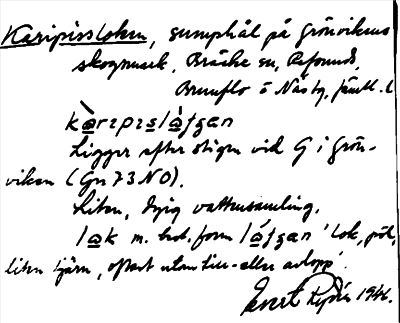 Karipissloken, sumphål på Grönvikens
skogsmark, Bräcke sn, Refsunds,
Brunflo o Näs tg, Jämtl. l
kàrɪpɪslàfgan
Ligger efter stigen vid G i Grön-
viken (Gn 73 NO).
Liten, dyig vattensamling.
lak m. best. form láfgan 'lok, pöl,
liten tjärn, oftast utan till- eller avlopp'.
1946.